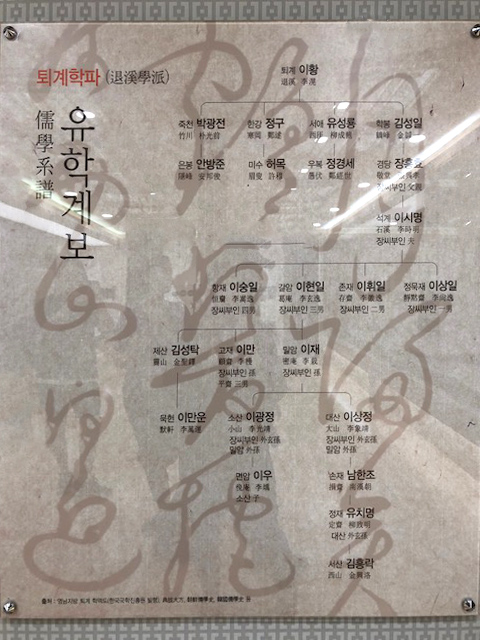 퇴계학파 (退溪學派)
유학계보
儒學系譜
퇴계 이황
退溪 李滉
죽천 박광전 한강 정구 서애 유성룡 학봉 김성일
竹川 朴光前 寒岡 鄭逑 西厓 柳成龍 鶴峰 金誠一
은봉 안방준 미수 허목 우복 정경세 경당 장흥효
隱峰 安邦俊 眉叟 許穆 愚伏 鄭經世 敬堂
장씨부인 父親
석계 이시명
石溪 李時明
장씨부인 夫
항재 이숭일 갈암 이현일 존재 이휘일 정묵재 이상일
恒齋 李嵩逸 葛庵 李玄逸 存齋 李徽逸 靜默齋 李尙逸
장씨부인 四男 장씨부인 三男 장씨부인 二男 장씨부인 一男
제산 김성탁 고재 이만 밀암 이재
霽山 金聖鐸 顧齋 李槾 密庵 李栽
장씨부인 孫 장씨부인 孫
平齋 三男
묵헌 이만운 소산 이광정 대산 이상정
默軒 李萬運 小山 李光靖 大山 李象靖
장씨부인 外玄孫 장씨부인 外玄孫
밀암 外孫 밀암 外孫
면암 이우 손재 남한조
俛庵 李㙖 損齋 南漢朝
소산 子
정재 유치명
定齋 柳致明
대산 外玄孫
서산 김흥락
西山 金興洛
출처 : 영남지방 퇴계 학맥도(한국국학진흥원 발행), 典故大方, 朝鮮儒學史, 韓國儒學史 等